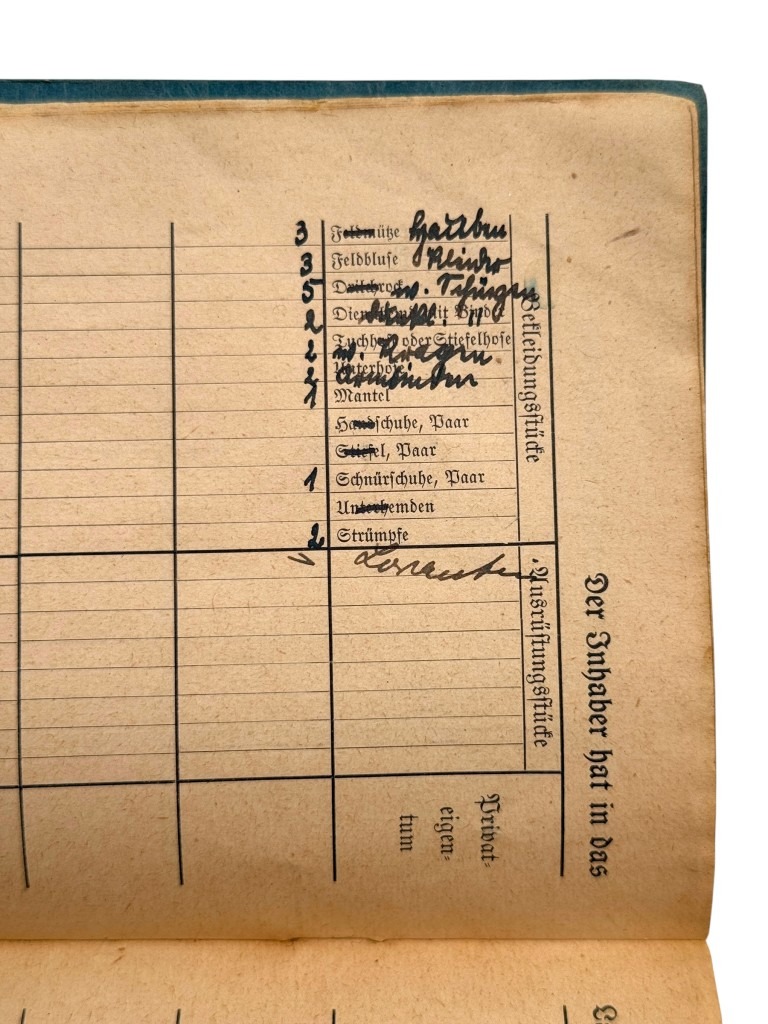 Der Inhaber hat in das
Bekleidungsstücke
3 Feldmütze Hauben
3 Feldbluse Kleider
5 Drillichrock w. Schürzen
2 mit Binde
2 Tuchhose oder Stiefelhose w. Kragen
2 Unterhose Armbinden
1 Mantel
Handschuhe, Paar
Stiefel, Paar
1 Schnürschuhe, Paar
Unterhemden
2 Strümpfe
Ausrüstungsstücke
Privat-
eigen-
tum